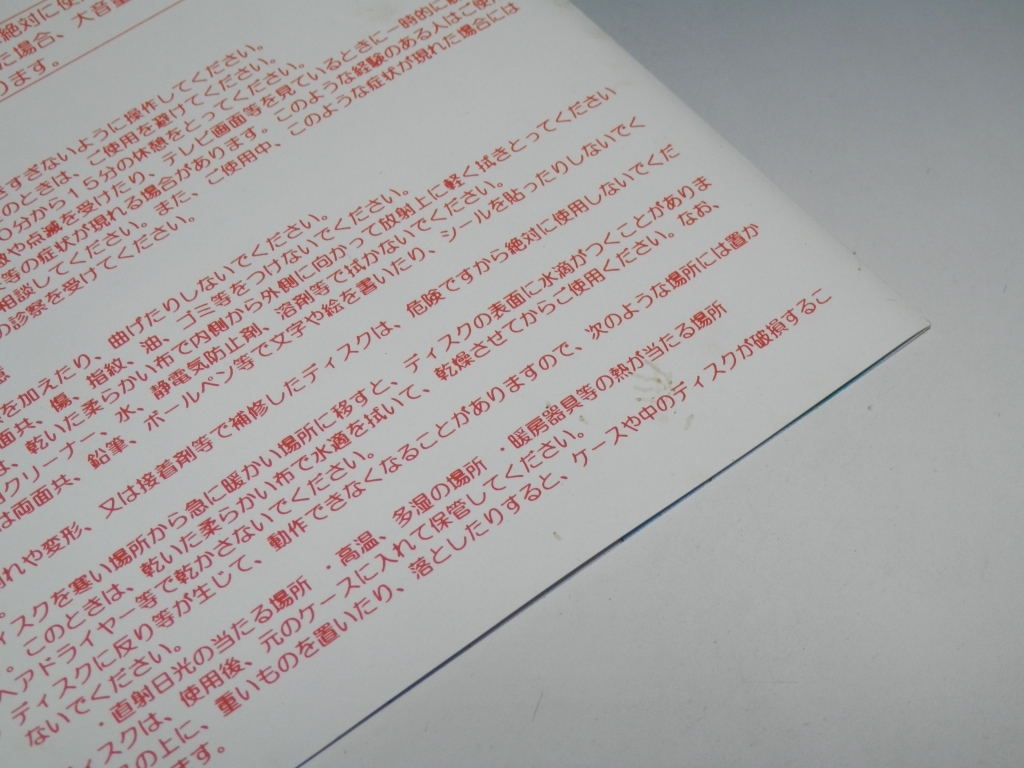 絶対に使
場合、大音量
ります。
すぎないように操作してください。
のときは、ご使用を避けてください。
0分から15分の休憩をとってください。
や点滅を受けたり、テレビ画面等を見ているときに一時的に
等の症状が現れる場合があります。このような経験のある人はご使
相談してください。また、ご使用中、このような症状が現れた場合には
の診察を受けてください。
を加えたり、曲げたりしないでください。
面共、傷、指紋、油、ゴミ等をつけないでください。
は、乾いた柔らかい布で内側から外側に向かって放射上に軽く拭きとってください
クリーナー、水、静電気防止剤、溶剤等で拭かないでください。
は両面共、鉛筆、ボールペン等で文字や絵を書いたり、シールを貼ったりしないでく
割れや変形、又は接着剤等で補修したディスクは、危険ですから絶対に使用しないでくだ
ィスクを寒い場所から急に暖かい場所に移すと、ディスクの表面に水滴がつくことがありま
。このときは、乾いた柔らかい布で水滴を拭いて、乾燥させてからご使用ください。なお、
ヘアドライヤー等で乾かさないでください。
ディスクに反り等が生じて、動作できなくなることがありますので、次のような場所には置か
ないでください。
・直射日光の当たる場所 ・高温、多湿の場所 ・暖房器具等の熱が当たる場所
ィスクは、使用後、元のケースに入れて保管してください。
の上に、重いものを置いたり、落としたりすると、ケースや中のディスクが破損するこ
ます。